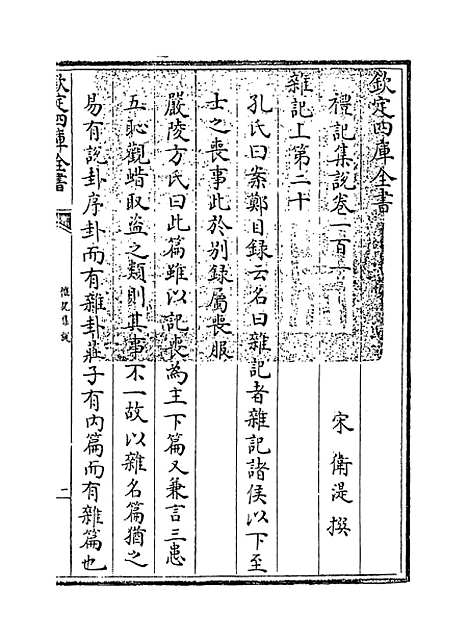 欽定四庫全書
禮記集說卷一百一
宋 衛湜 撰
雜記上第二十
孔氏曰案鄭目録云名曰雜記者雜記諸侯以下至
士之喪事此於別録屬喪服
嚴陵方氏曰此篇雖以記喪為主下篇又兼言三患
五恥觀蜡取盜之類則其事不一故以雜名篇猶之
易有說卦序卦而有雜卦莊子有内篇而有雜篇也
欽定四庫全書
禮記集說